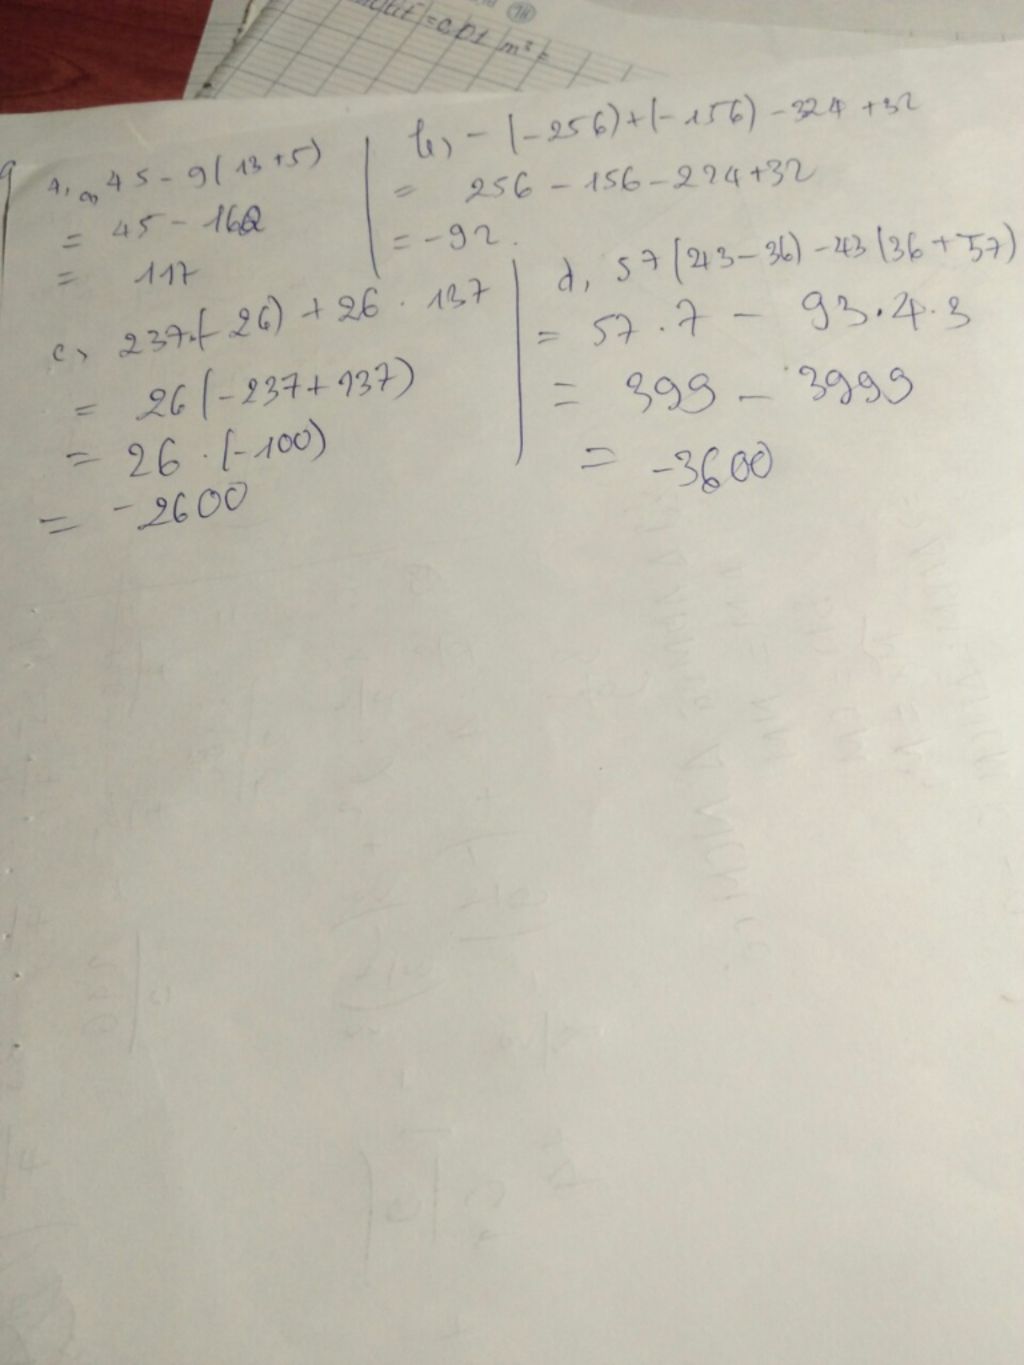 = 0,01 m³ =
a, 45 - 9(13 + 5)
= 45 - 162
= 117
b, - (-256) + (-156) - 324 + 32
= 256 - 156 - 224 + 32
= -92.
c, 237.(-26) + 26 . 137
= 26(-237 + 137)
= 26 . (-100)
= -2600
d, 57(43 - 36) - 43(36 + 57)
= 57 . 7 - 93.4.3
= 399 - 3999
= -3600